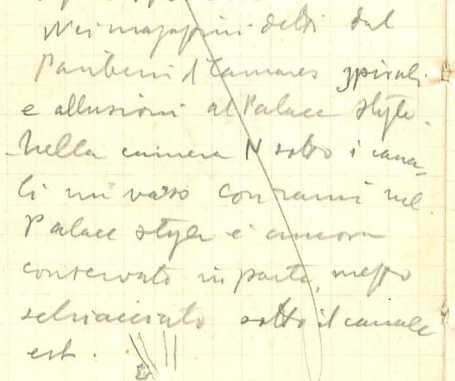 Nei magazzini detti dal
Paribeni di Camares spirali
e allusioni al Palace style.
Nella camera N sotto i cana-
li un vaso con rami nel
Palace style è ancora
conservato in parte, mezzo
schiacciato sotto il canale
est.